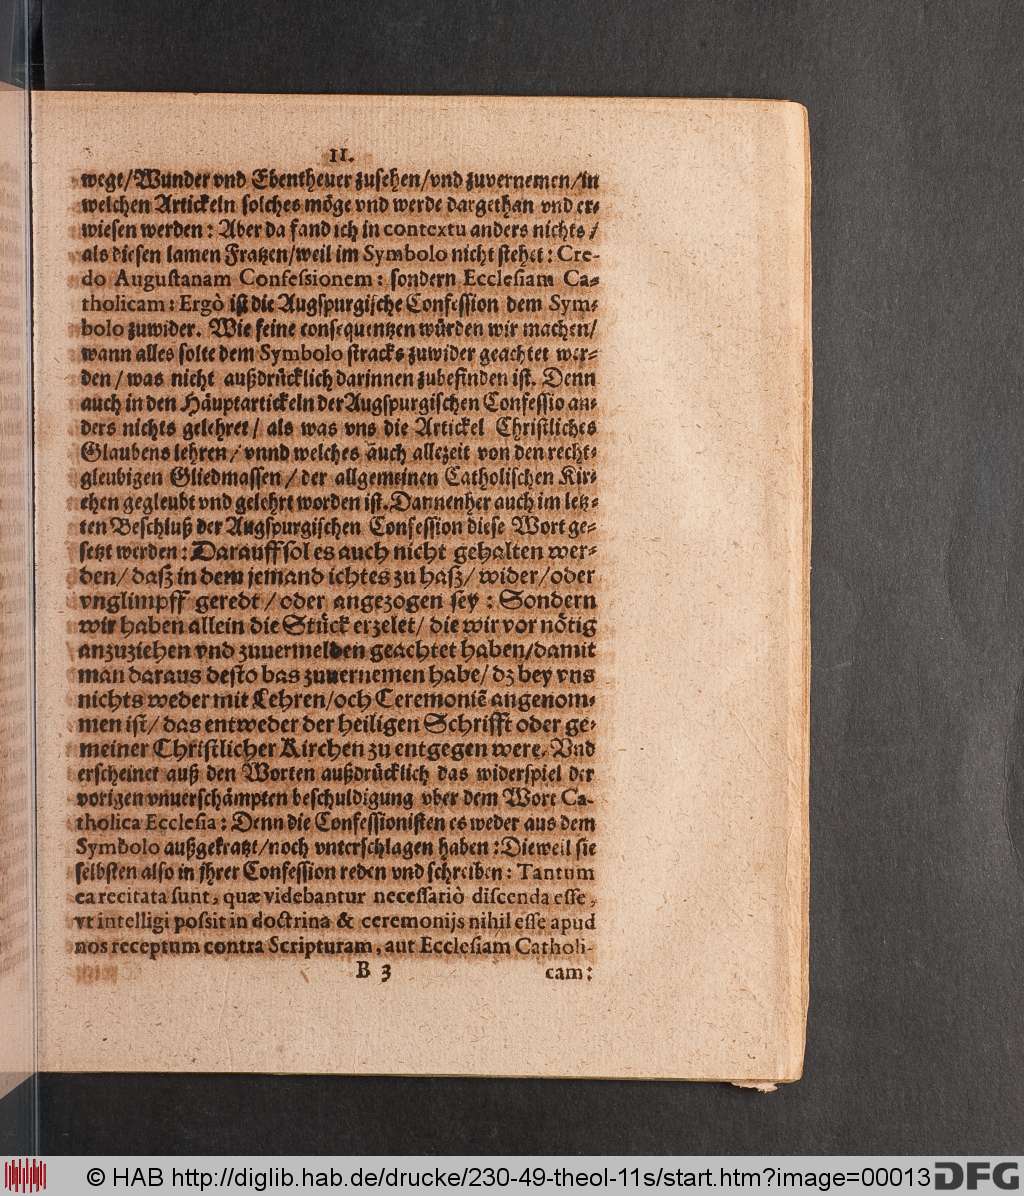 11.
wegt/Wunder vnd Ebentheuer zusehen/vnd zuvernemen/in
welchen Artickeln solches möge vnd werde dargethan vnd er⸗
wiesen werden: Aber da fand ich in contextu anders nichts /
als diesen lamen Fratzen/weil im Symbolo nicht stehet: Cre-
do Augustanam Confessionem: sondern Ecclesiam Ca⸗
tholicam: Ergò ist die Augspurgische Confession dem Sym⸗
bolo zuwider. Wie feine consequentzen würden wir machen/
wann alles solte dem Symbolo stracks zuwider geachtet wer⸗
den / was nicht außdrücklich darinnen zubefinden ist. Denn
auch in den Häuptartickeln der Augspurgischen Confessio an⸗
ders nichts gelehret / als was vns die Artickel Christliches
Glaubens lehren / vnnd welches auch allezeit von den recht⸗
gleubigen Gliedmassen / der allgemeinen Catholischen Kir⸗
chen gegleubt vnd gelehrt worden ist. Dannenher auch im letz⸗
ten Beschluß der Augspurgischen Confession diese Wort ge⸗
setzt werden: Darauff sol es auch nicht gehalten wer⸗
den/ daß in dem jemand ichtes zu haß/ wider/oder
vnglimpff geredt / oder angezogen sey : Sondern
wir haben allein die Stück erzelet/ die wir vor nötig
anzuziehen vnd zuuermelden geachtet haben/damit
man daraus desto bas zuuernemen habe/ dz bey vns
nichts weder mit Lehren/och Ceremoniẽ angenom⸗
men ist/ das entweder der heiligen Schrifft oder ge⸗
meiner Christlicher Kirchen zu entgegen were. Vnd
erscheinet auß den Worten außdrücklich das widerspiel der
vorigen vnuerschämpten beschuldigung vber dem Wort Ca-
tholica Ecclesia: Denn die Confessionisten es weder aus dem
Symbolo außgekratzt/noch vnterschlagen haben: Dieweil sie
selbsten also in jhrer Confession reden vnd schreiben: Tantum
ea recitata sunt, quæ videbantur necessariò discenda esse,
vt intelligi possit in doctrina & ceremonijs nihil esse apud
nos receptum contra Scripturam, aut Ecclesiam Catholi-
B 3 cam:
© HAB http://diglib.hab.de/drucke/230-49-theol-11s/start.htm?image=00013 DFG